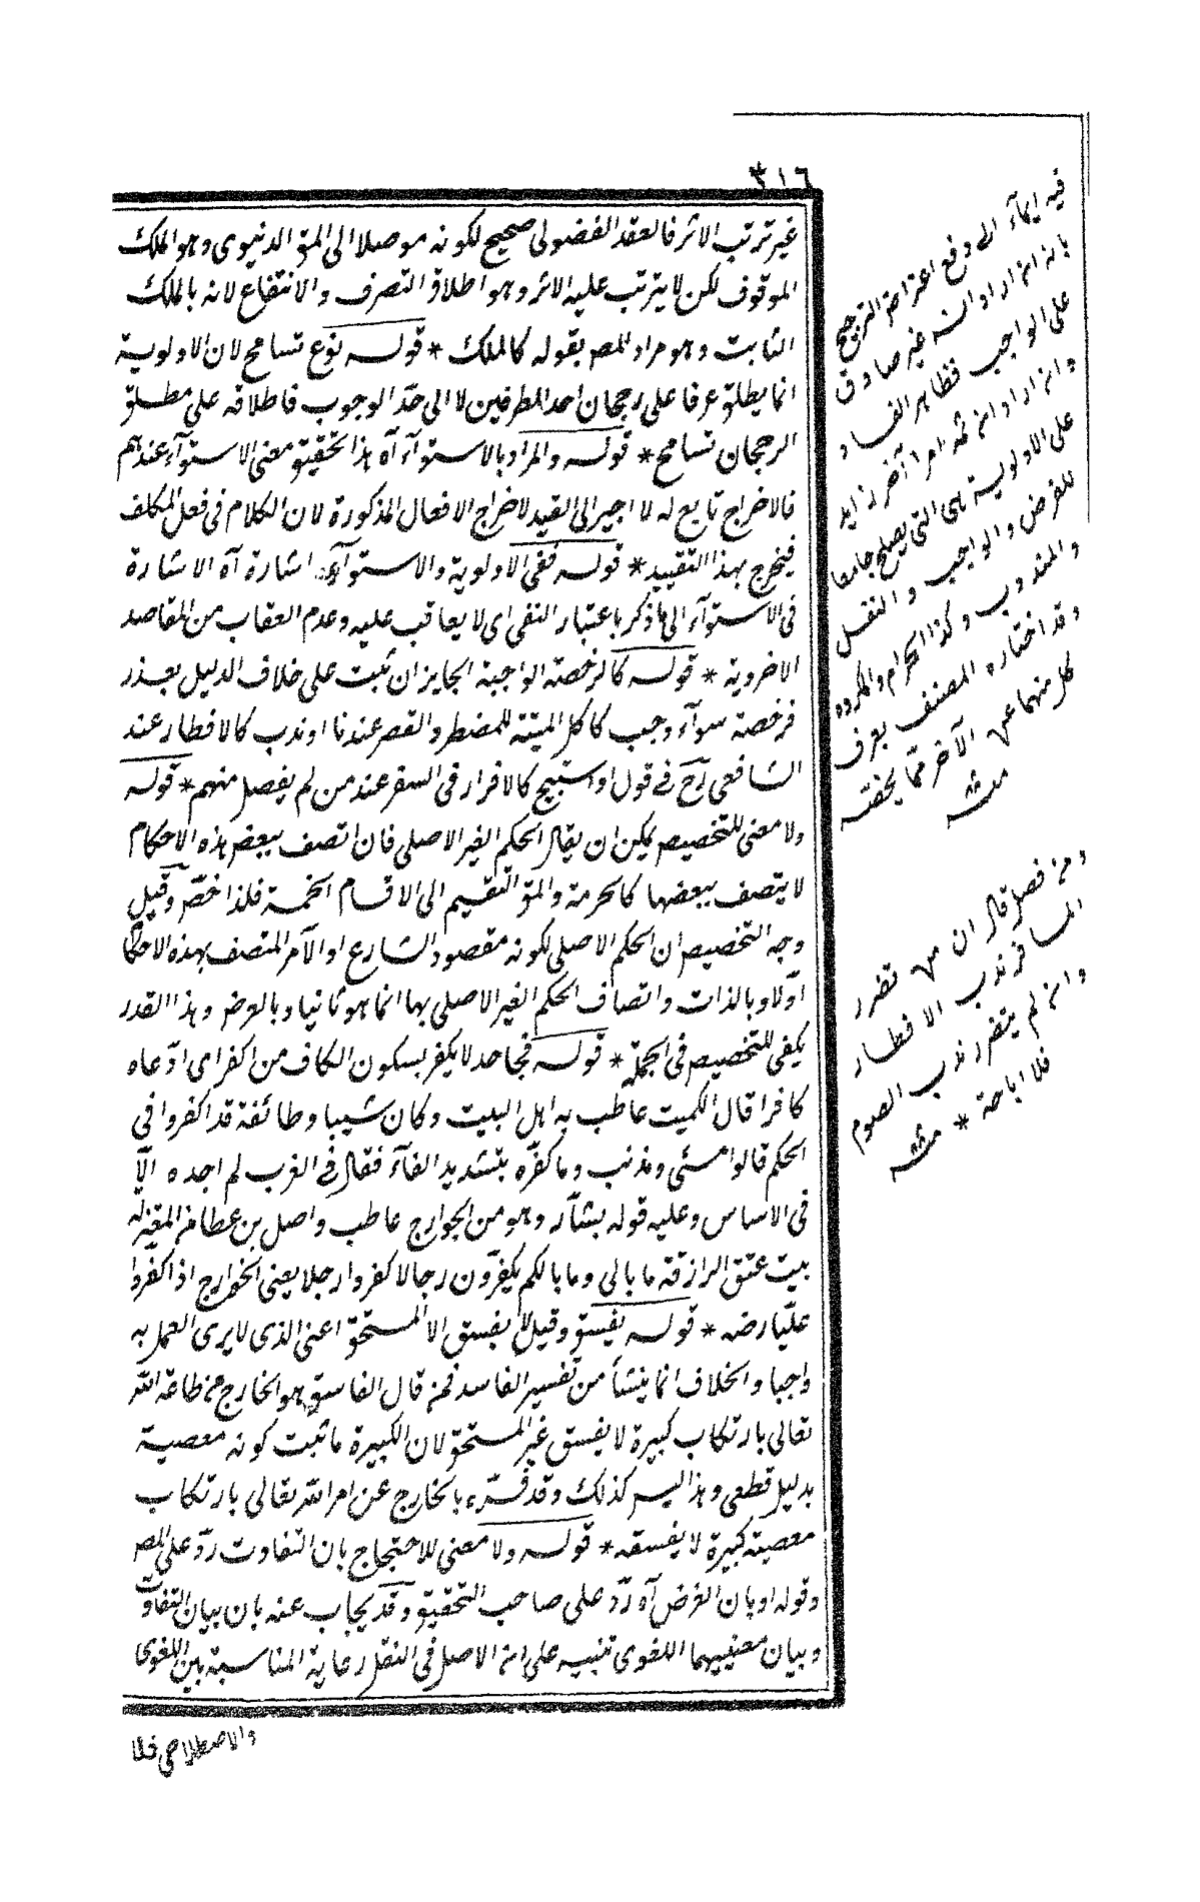 ٣١٦
غير ترتب الاثر فالعقد الفضولى صحيح لكونه موصلا الى المق الدنيوى وهو الملك
الموقوف لكن لا يترتب عليه الاثر وهو اطلاق التصرف والانتفاع لانه بالملك
الثابت وهو مراد المص بقوله كالملك * قوله نوع تسامح لان الاولوية
انما يطلق عرفا على رجحان احد الطرفين لا الى حد الوجوب فاطلاقه على مطلق
الرجحان تسامح * قوله والمراد بالاستوآء آه هذا تحقيق معنى الاستوآء عندهم
فالاخراج تابع له لا اجير الى القيد لاخراج الافعال المذكورة لان الكلام فى فعل المكلف
فيخرج بهذا التقييد * قوله ففى الاولوية والاستوآء اشارة آه الاشارة
فى الاستوآء الى ما ذكر باعتبار النفى اى لا يعاقب عليه وعدم العقاب من المقاصد
الاخروية * قوله كالرخصة الواجبة الجايز ان ثبت على خلاف الدليل بعذر
فرخصة سوآء وجب كاكل الميتة للمضطر والقصر عندنا او ندب كالافطار عند
الشافعى رح فى قول او استبيح كالافرار فى السفر عند من لم يفصل منهم * قوله
ولا معنى للتخصيص يمكن ان يقال الحكم الغير الاصلى فان اتصف ببعض هذه الاحكام
لا يتصف ببعضها كالحرمة والمق التقسيم الى الاقسام الخمسة فلذا خص وقيل
وجه التخصيص ان الحكم الاصلى لكونه مقصود الشارع او الآمر المتصف بهذه الاحكا
اولا وبالذات واتصاف الحكم الغير الاصلى بها انما هو ثانيا وبالعرض وهذا القدر
يكفى للتخصيص فى الجملة * قوله فجاحد لا يكفر بسكون الكاف من اكفر اى ادعاه
كافرا قال الكميت عاطب به اهل البيت وكان شيبا وطائفة قد اكفروا فى
الحكم قالوا مسئ ومذنب وما كفره بتشديد الفآء فقال فى الغرب لم اجده الا
فى الاساس وعليه قوله بشآر وهو من الجوارج عاطب واصل بن عطا من المعتزله
بيت عنق الرازقه ما بالى وما بالكم يكفرون رجالا كفروا رجلا يعنى الخوارج اذا كفروا
عليا رضه * قوله يفسق وقيل لا يفسق الا المستحق اعنى الذى لا يرى العمل به
واجبا والخلاف انما ينشأ من تفسير الفاسد فمن قال الفاسق هو الخارج من طاعة الله
تعالى بارتكاب كبيرة لا يفسق غير المستحق لان الكبيرة ما ثبت كونه معصية
بدليل قطعى وهذا ليس كذلك وقد فسره بالخارج عن امر الله تعالى بارتكاب
معصية كبيرة لا يفسقه * قوله ولا معنى للاحتجاج بان التفاوت رد على المص
وقوله او بان الفرض آه رد على صاحب التحقيق وقد يجاب عنه بان بيان التفاوت
وبيان معنييهما اللغوى تنبيه على ان الاصل فى النقل رعاية المناسبة بين اللغوى
والاصطلاحى فلا
فيه ايمآء الى دفع اعتراض الترجيح
بانه ان اراد انه غير صادق
على الواجب فظاهر الفساد
وان اراد ان ثمه امرا آخر زايد
على الاولوية هى التى يصلح جامعا
للفرض والواجب والنفل
والمندوب وكذا الحرام والمكروه
وقد اختاره المصنف يعرف
كل منهما عن الآخر مما يخصه
منه
ومن فصل قال ان من تضرر
المسافر ندب الافطار
وان لم يتضرر ندب الصوم
فلا اباحة * منه